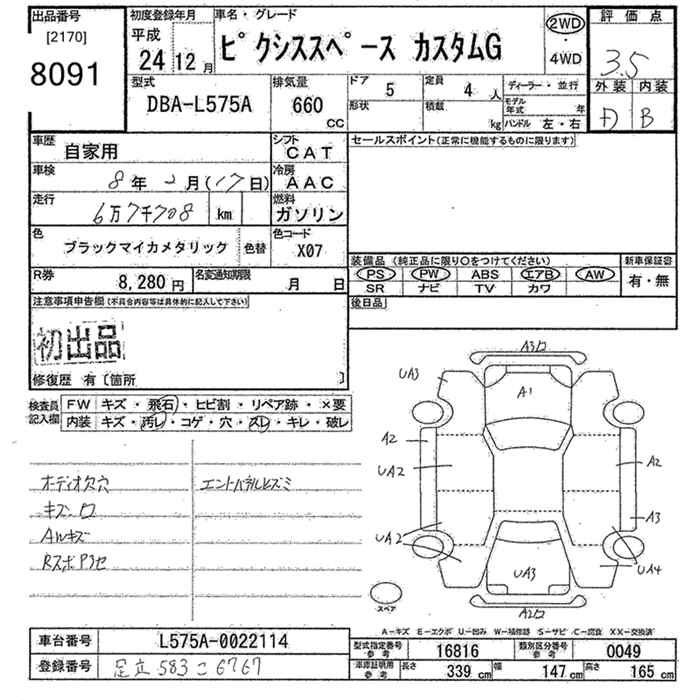 出品番号
[2170]
8091
初度登録年月
平成
24 12 月
車名・グレード
ピクシススペース カスタムG
2WD
・
4WD
評価点
3.5
外装 内装
D B
型式
DBA-L575A
排気量
660
CC
ドア 5
定員 4 人
形状
積載 kg
ディーラー・並行
モデル年式 年
ハンドル 左・右
車歴
自家用
シフト
CAT
車検
8 年 月(17日)
冷房
AAC
走行
6万7千708 km
燃料
ガソリン
色
ブラックマイカメタリック
色替
色コード
X07
R券
8,280 円
名変通知期限
月 日
セールスポイント(正常に機能するものに限ります)
装備品 (純正品に限り○をつけてください)
新車保証書
PS PW ABS エアB AW
SR ナビ TV カワ
有・無
後日品
注意事項申告欄(不具合内容等は具体的に記入して下さい)
初出品
修復歴 有〔箇所 〕
検査員記入欄
FW キズ・飛石・ヒビ割・リペア跡・×要
内装 キズ・汚レ・コゲ・穴・スレ・キレ・破レ
オーディオ欠穴
キズ
AWキズ
A3
UA3
A1
A2
UA2
UA2
A2
A3
UA4
UA3
A2
スペア
A-キズ E-エクボ U-凹み W-補修跡 S-サビ C-腐食 XX-交換済
車台番号
L575A-0022114
登録番号
足立 583 こ 6767
型式指定番号 参考
16816
類別区分番号 参考
0049
車庫証明用 参考
長さ 339 cm
幅 147 cm
高さ 165 cm